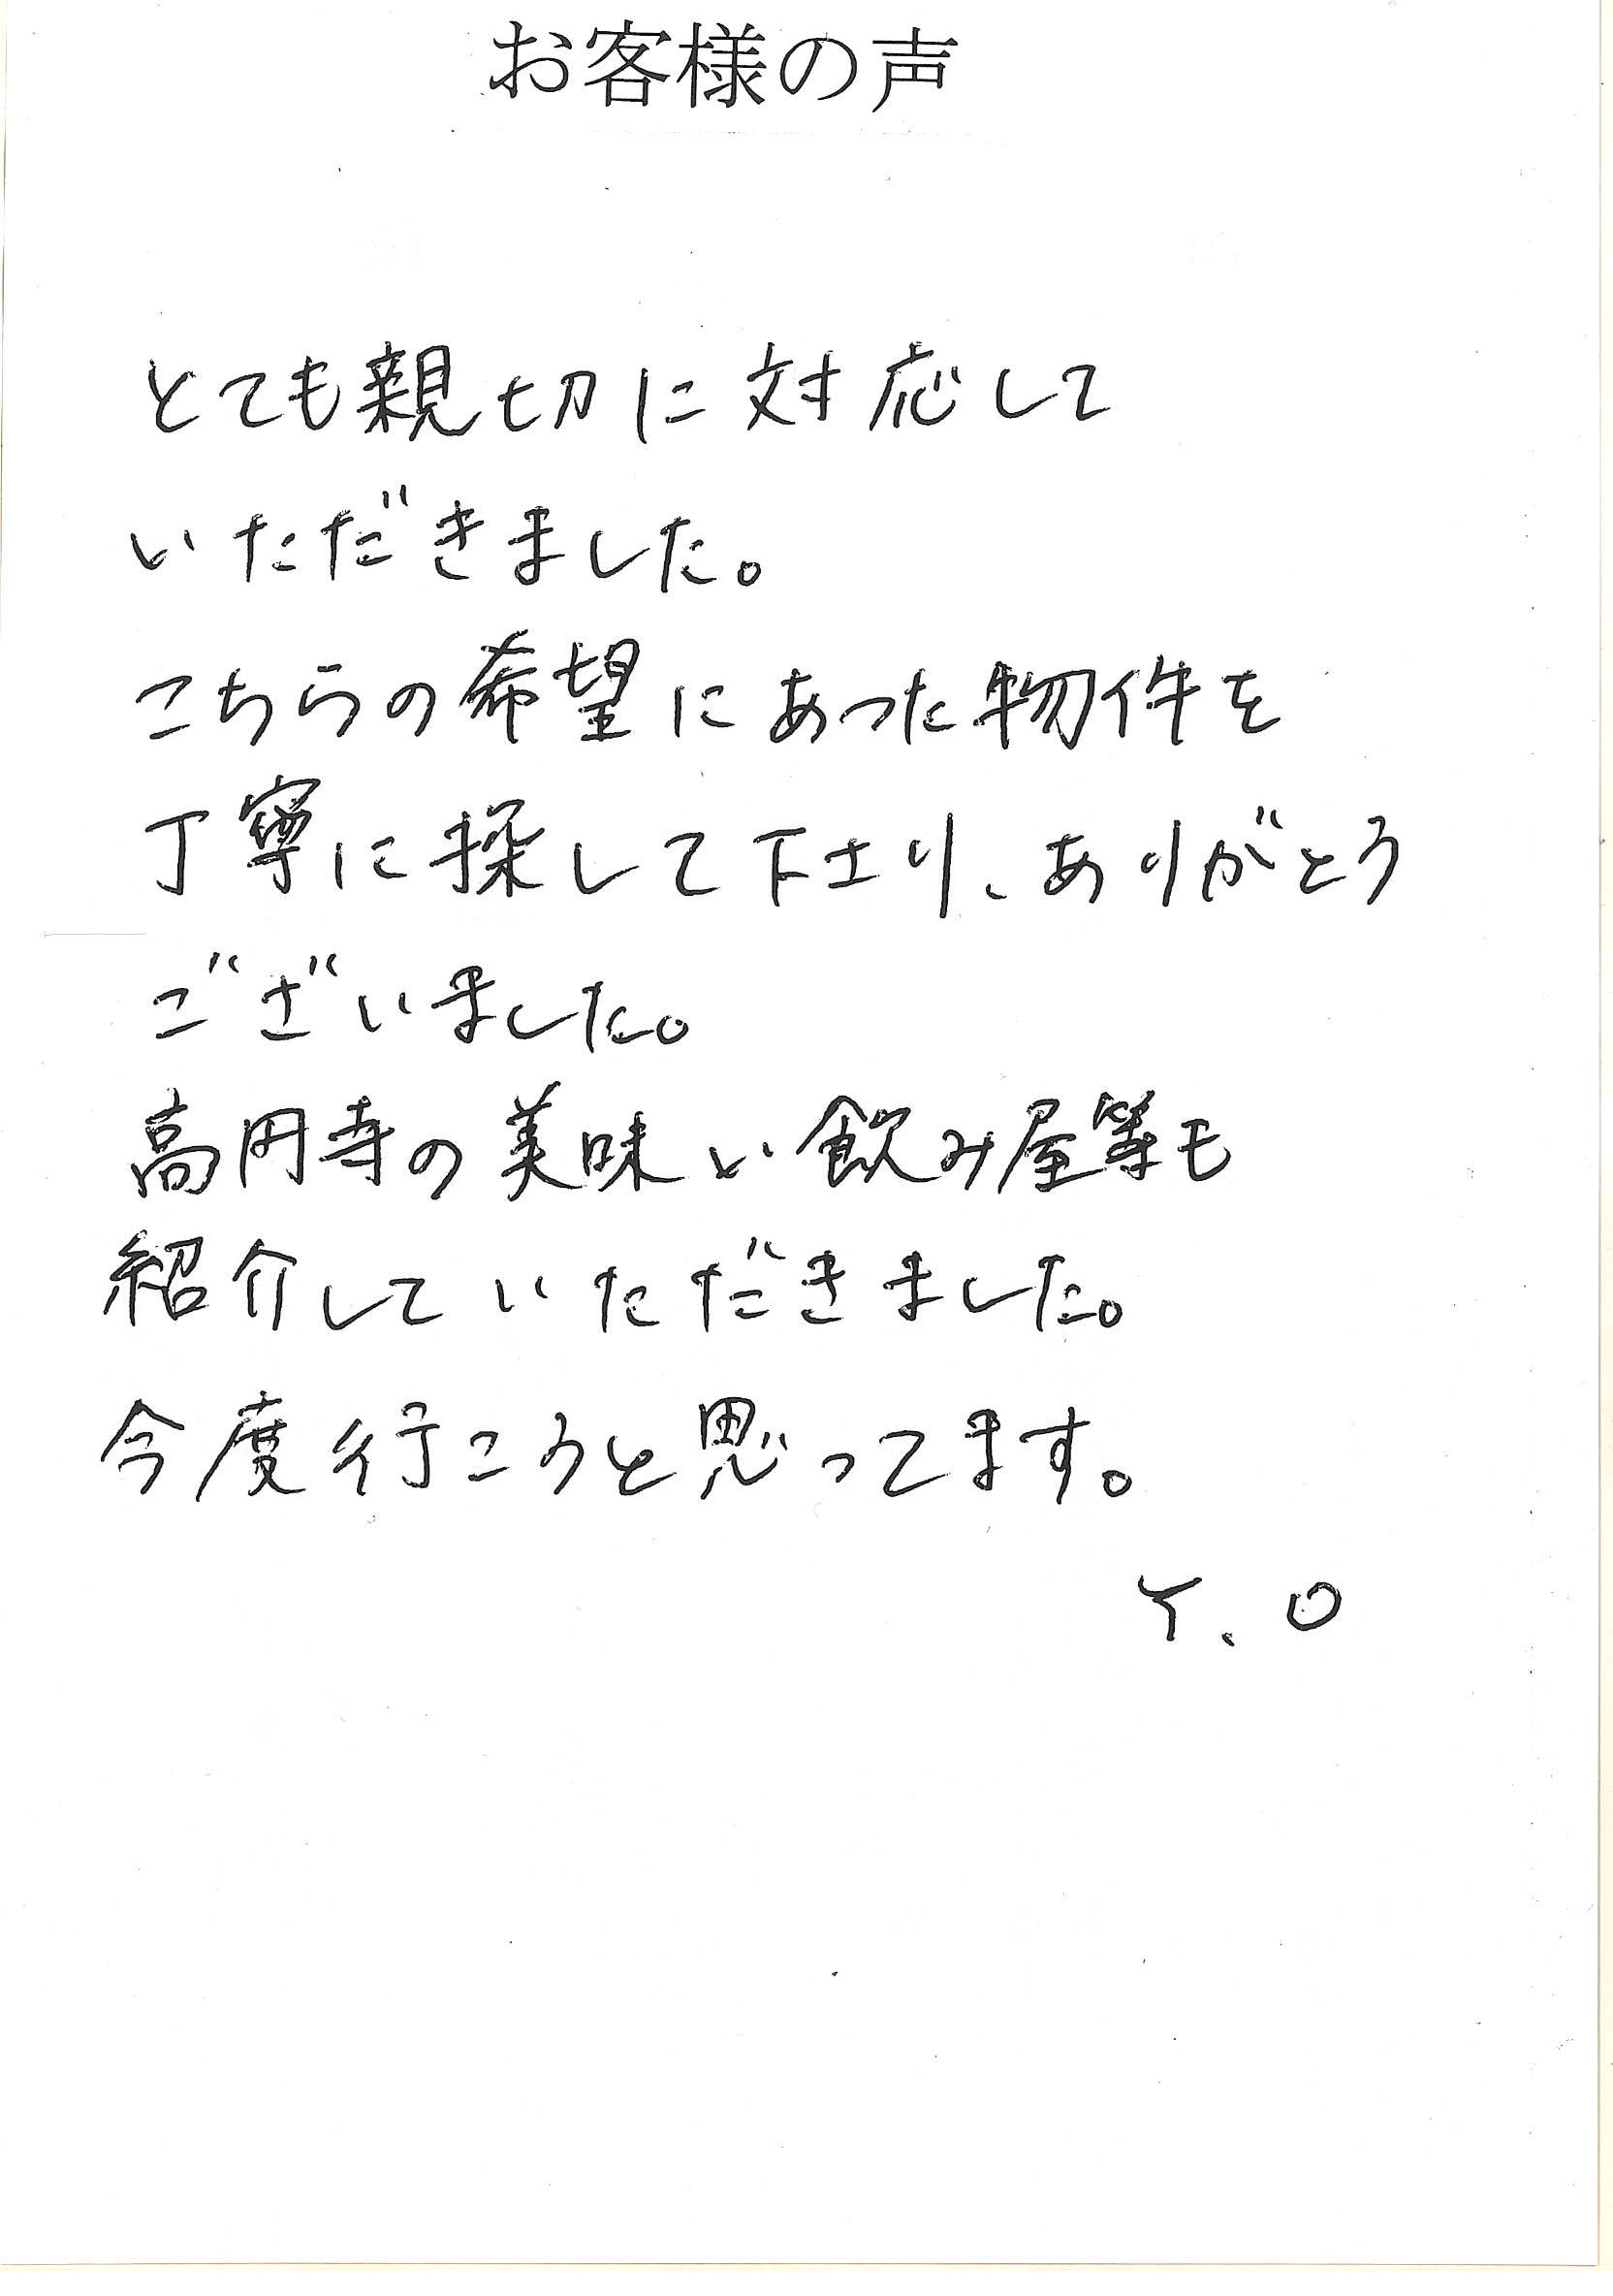 お客様の声
とても親切に対応して
いただきました。
こちらの希望にあった物件を
丁寧に探して下さり、ありがとう
ございました。
高円寺の美味い飲み屋等も
紹介していただきました。
今度行こうと思ってます。
Y.O